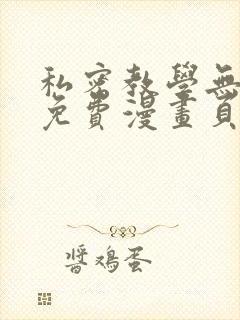 私密教學無
免費漫畫頁
醬鸡蛋